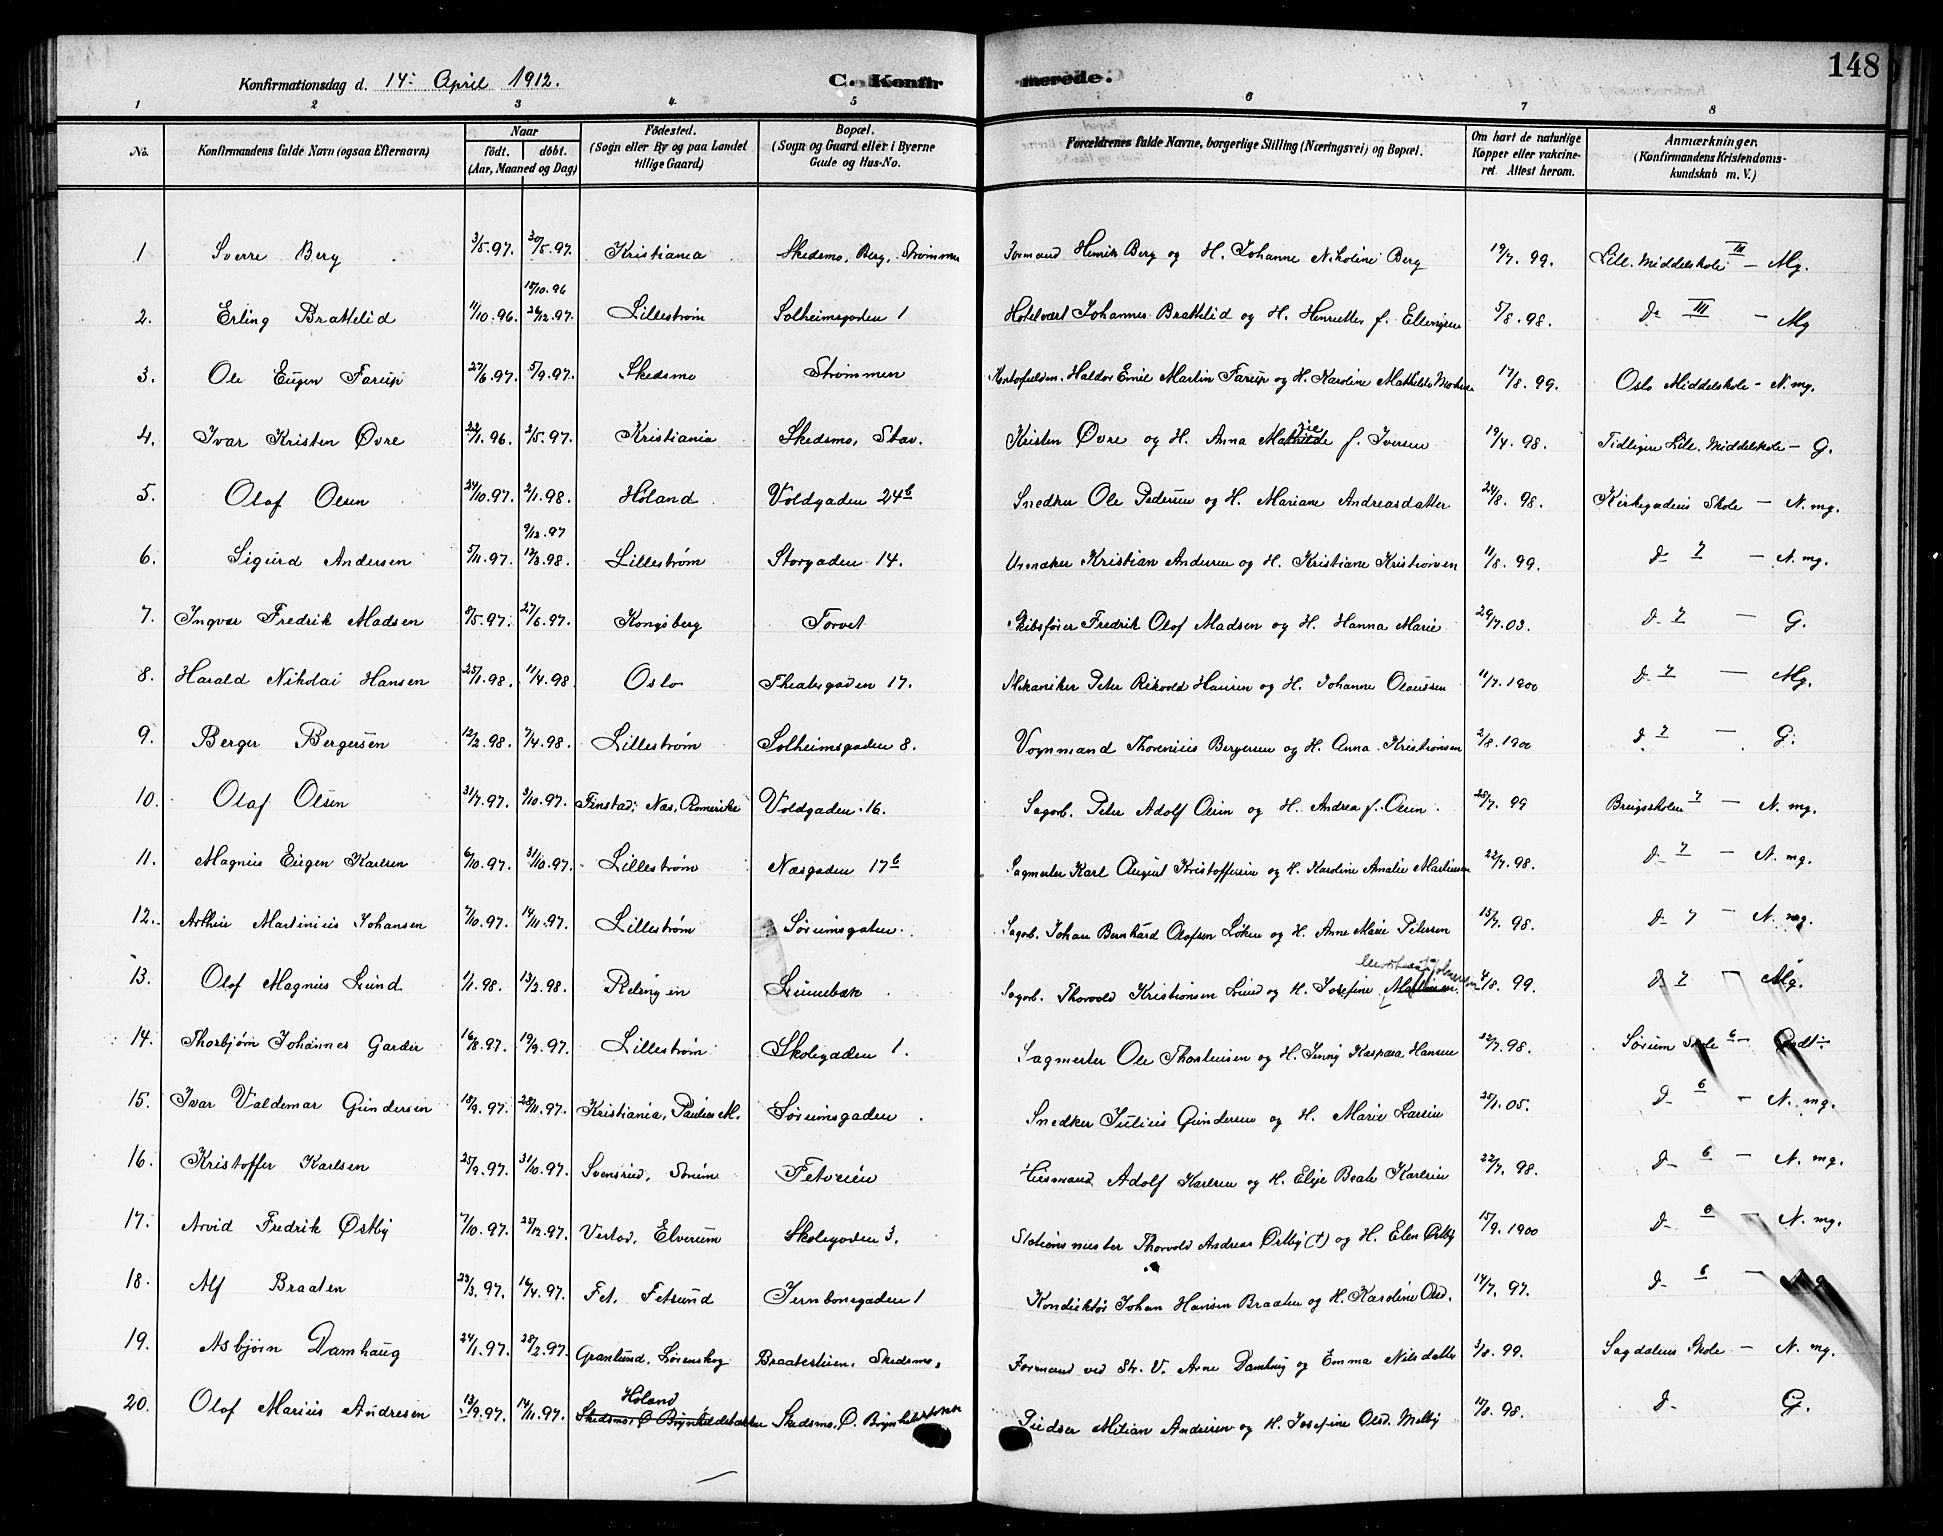 148
Konfirmationsdag d. 14. April 1912. C. Konfirmerede.
1 2 3 4 5 6 7 8
No. Konfirmandens fulde Navn (ogsaa Efternavn) Naar født. døbt. (Aar, Maaned og Dag) Fødested. (Sogn eller By og paa Landet tillige Gaard) Bopæl. (Sogn og Gaard eller i Byerne Gade og Hus-No. Forældrenes fulde Navne, borgerlige Stilling (Næringsvei) og Bopæl. Om havt de naturlige Kopper eller vakcineret. Attest herom. Anmærkninger. (Konfirmandens Kristendomskundskab m. V.)
1 Sverre Berg 3/5.97. 30/5.97. Kristiania Skedsmo, Berg, Strømmen Formand Henrik Berg og H. Johanne Nikoline Berg 19/7.99. Lill. Middelskole III – Mg.
15/10.96
2. Erling Brattelid 11/10.96. 26/12.97. Lillestrøm Solheimsgaden 1 Hotelvært Johannes Brattelid og H. Henriette f. Ellingsen 5/8.98. Do III – Mg
3. Ole Eugen Farup 27/6.97. 5/9.97. Skedsmo Strømmen Haldor Emil Martin Farup og H. Karoline Mathilde 17/8.99. Oslo Middelskole – N. mg.
4. Ivar Kristen Øvre 22/1.96. 2/5.97. Kristiania Skedsmo, Stav. Kristen Øvre og H. Anna Mathilde f. Iversen 19/4.98. Tidligere Lill. Middelskole – G.
5. Olaf Olsen 24/10.97. 2/1.98. Høland Voldgaden 24b Snedker Ole Pedersen og H. Mariane Andreasdatter 24/8.98. Kirkegadens Skole – N. mg.
9/12.97
6. Sigurd Andersen 5/11.97. 13/3.98. Lillestrøm Storgaden 14. Urmaker Kristian Andersen og H. Kristiane Kristiansen 11/8.99. Do 7 – N. mg.
7. Ingvar Fredrik Madsen 8/5.97. 27/6.97. Kongsberg Torvet Skibsfører Fredrik Olof Madsen og H. Hanna Marie 29/7.03. Do 7 – G.
8. Harald Nikolai Hansen 25/1.98. 11/4.98 Oslo Theatergaden 17. Mekaniker Peter Rikvold Hansen og H. Johanne Olaussen 11/7.1900 Do 7 – Mg.
9. Berger Bergersen 12/2.98. 7/4.98. Lillestrøm Solheimsgaden 8. Vognmand Thorenius Bergersen og H. Anna Kristiansen 2/8.1900 Do 7 – G.
10. Olaf Olsen 31/7.97. 3/10.97. Finstad, Næs, Romerike Voldgaden 16. Sagarb. Peter Adolf Olsen og H. Andrea f. Olsen 28/7.99 Brugsskolen 7 – N. mg.
11. Magnus Eugen Karlsen 6/10.97. 31/10.97. Lillestrøm Næsgaden 17b Sagmester Karl August Kristoffersen og H. Karoline Amalie Martinsen 22/7.98. Do 7 – N. mg.
12. Arthur Martinius Johansen 7/10.97. 14/11.97. Lillestrøm Sørumsgaten Sagarb. Johan Bernhard Olafsen Løken og H. Anne Marie Petersen 15/7.98. Do 7 – N. mg.
13. Olaf Magnus Lund 1/1.98. 13/2.98. Relingen Lunnebæk Sagarb. Thorvald Kristiansen Lund og H. Josefine 4/8.99. Do 7 – Mg.
14. Thorbjørn Johannes Garder 16/8.97. 19/9.97. Lillestrøm Skolegaden 1. Sagmester Ole Thostensen og H. Jenny Kaspara Hansen 22/7.98. Sørum Skole 6 – Godt.
15. Ivar Valdemar Gundersen 18/9.97. 28/11.97. Kristiania, Paulus M. Sørumsgaden Snedker Julius Gundersen og H. Marie Larsen 25/1.05. Do 6 – N. mg.
16. Kristoffer Karlsen 25/9.97. 31/10.97. Svensrud, Sørum Fetveien Husmand Adolf Karlsen og H. Elise Beate Karlsen 22/7.98. Do 6 – N. mg.
17. Arvid Fredrik Østby 7/10.97. 25/12.97. Vestad, Elverum Skolegaden 3. Stationsmester Thorvald Andreas Østby (†) og H. Elen Østby 15/9.1900 Do 6 – N. mg.
18. Alf Braaten 23/3.97. 16/4.97. Fet, Fetsund Jernbanegaden 1 Konduktør Johan Hansen Braaten og H. Karoline Olsd. 14/7.97. Do 6 – Mg
19. Asbjørn Damhaug 24/1.97. 28/2.97. Granlund, Lørenskog Braatestuen, Skedsmo, Formand ved Str. V. Arne Damhaug og Emma Nilsdatter 3/8.99. Sagdalens Skole – N. mg.
Høland
20. Olaf Marius Andresen 13/9.97. 14/11.97. Skedsmo, Ø. Brynhildsbakken Skedsmo, Ø. Brynhildsbakk Pudser Milian Andresen og H. Josefine Olsd. Melby 10/8.98. Do G.